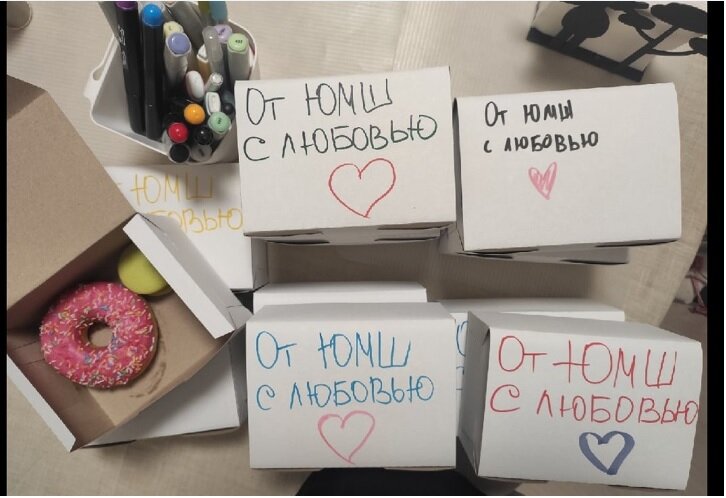 От ЮМШ
с любовью
От ЮМШ
с любовью
ЮМШ
овью
От ЮМШ
с любовью
От ЮМШ
с любовью